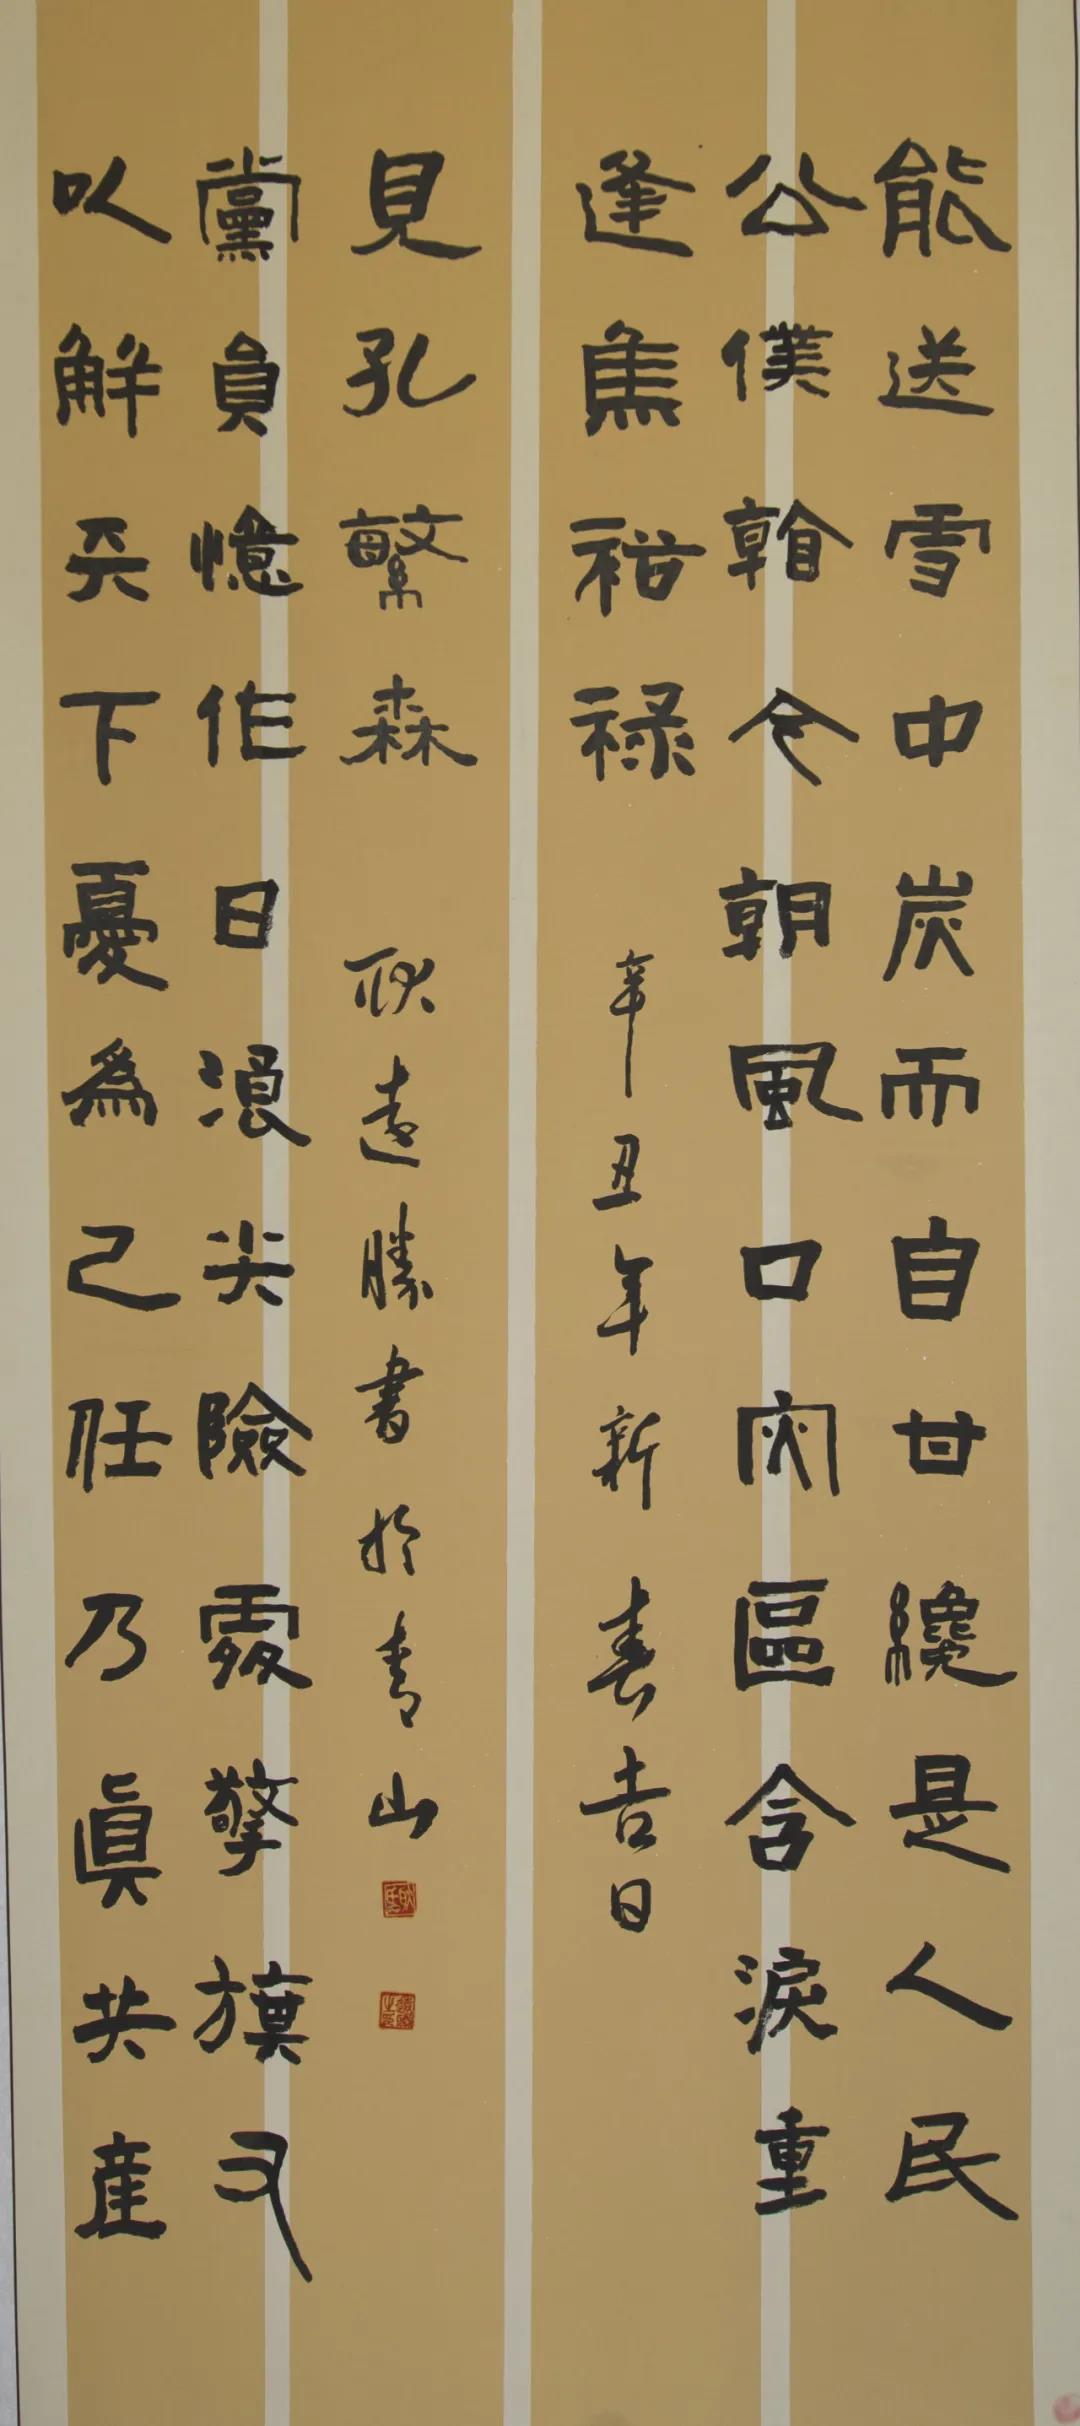 能送雪中炭而自甘纔是人民
公僕看今朝風口雨區含淚重
逢焦裕祿
辛丑年新春吉日
以解天下憂爲己任乃眞共產
黨員憶作日浪尖險處擎旗又
見孔繁森
耿遠勝書於青山